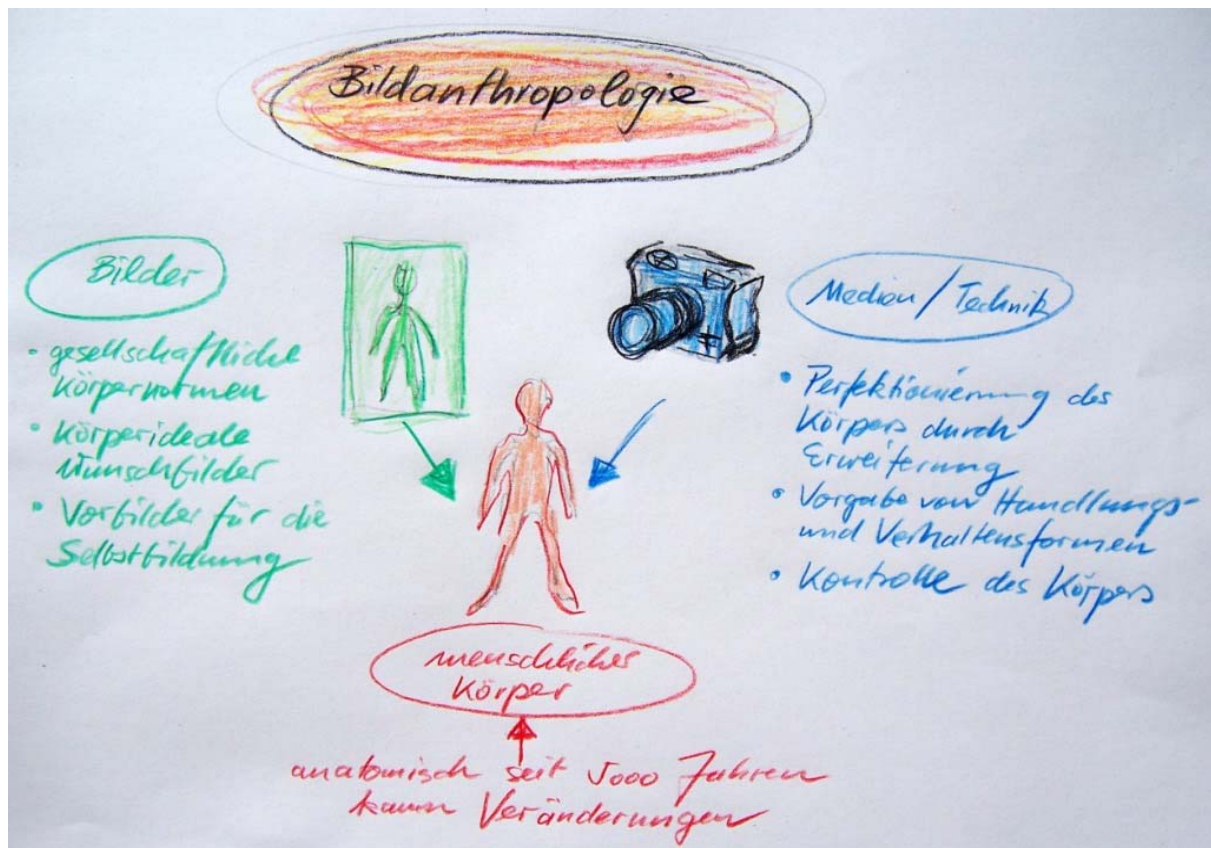 Bildanthropologie
Bilder
• gesellschaftliche
Körpernormen
• Körperideale
Wunschbilder
• Vorbilder für die
Selbstbildung
Medien/Technik
• Perfektionierung des
Körpers durch
Erweiterung
• Vorgabe von Handlungs-
und Verhaltensformen
• Kontrolle des Körpers
menschlicher
Körper
anatomisch seit 5000 Jahren
kaum Veränderungen